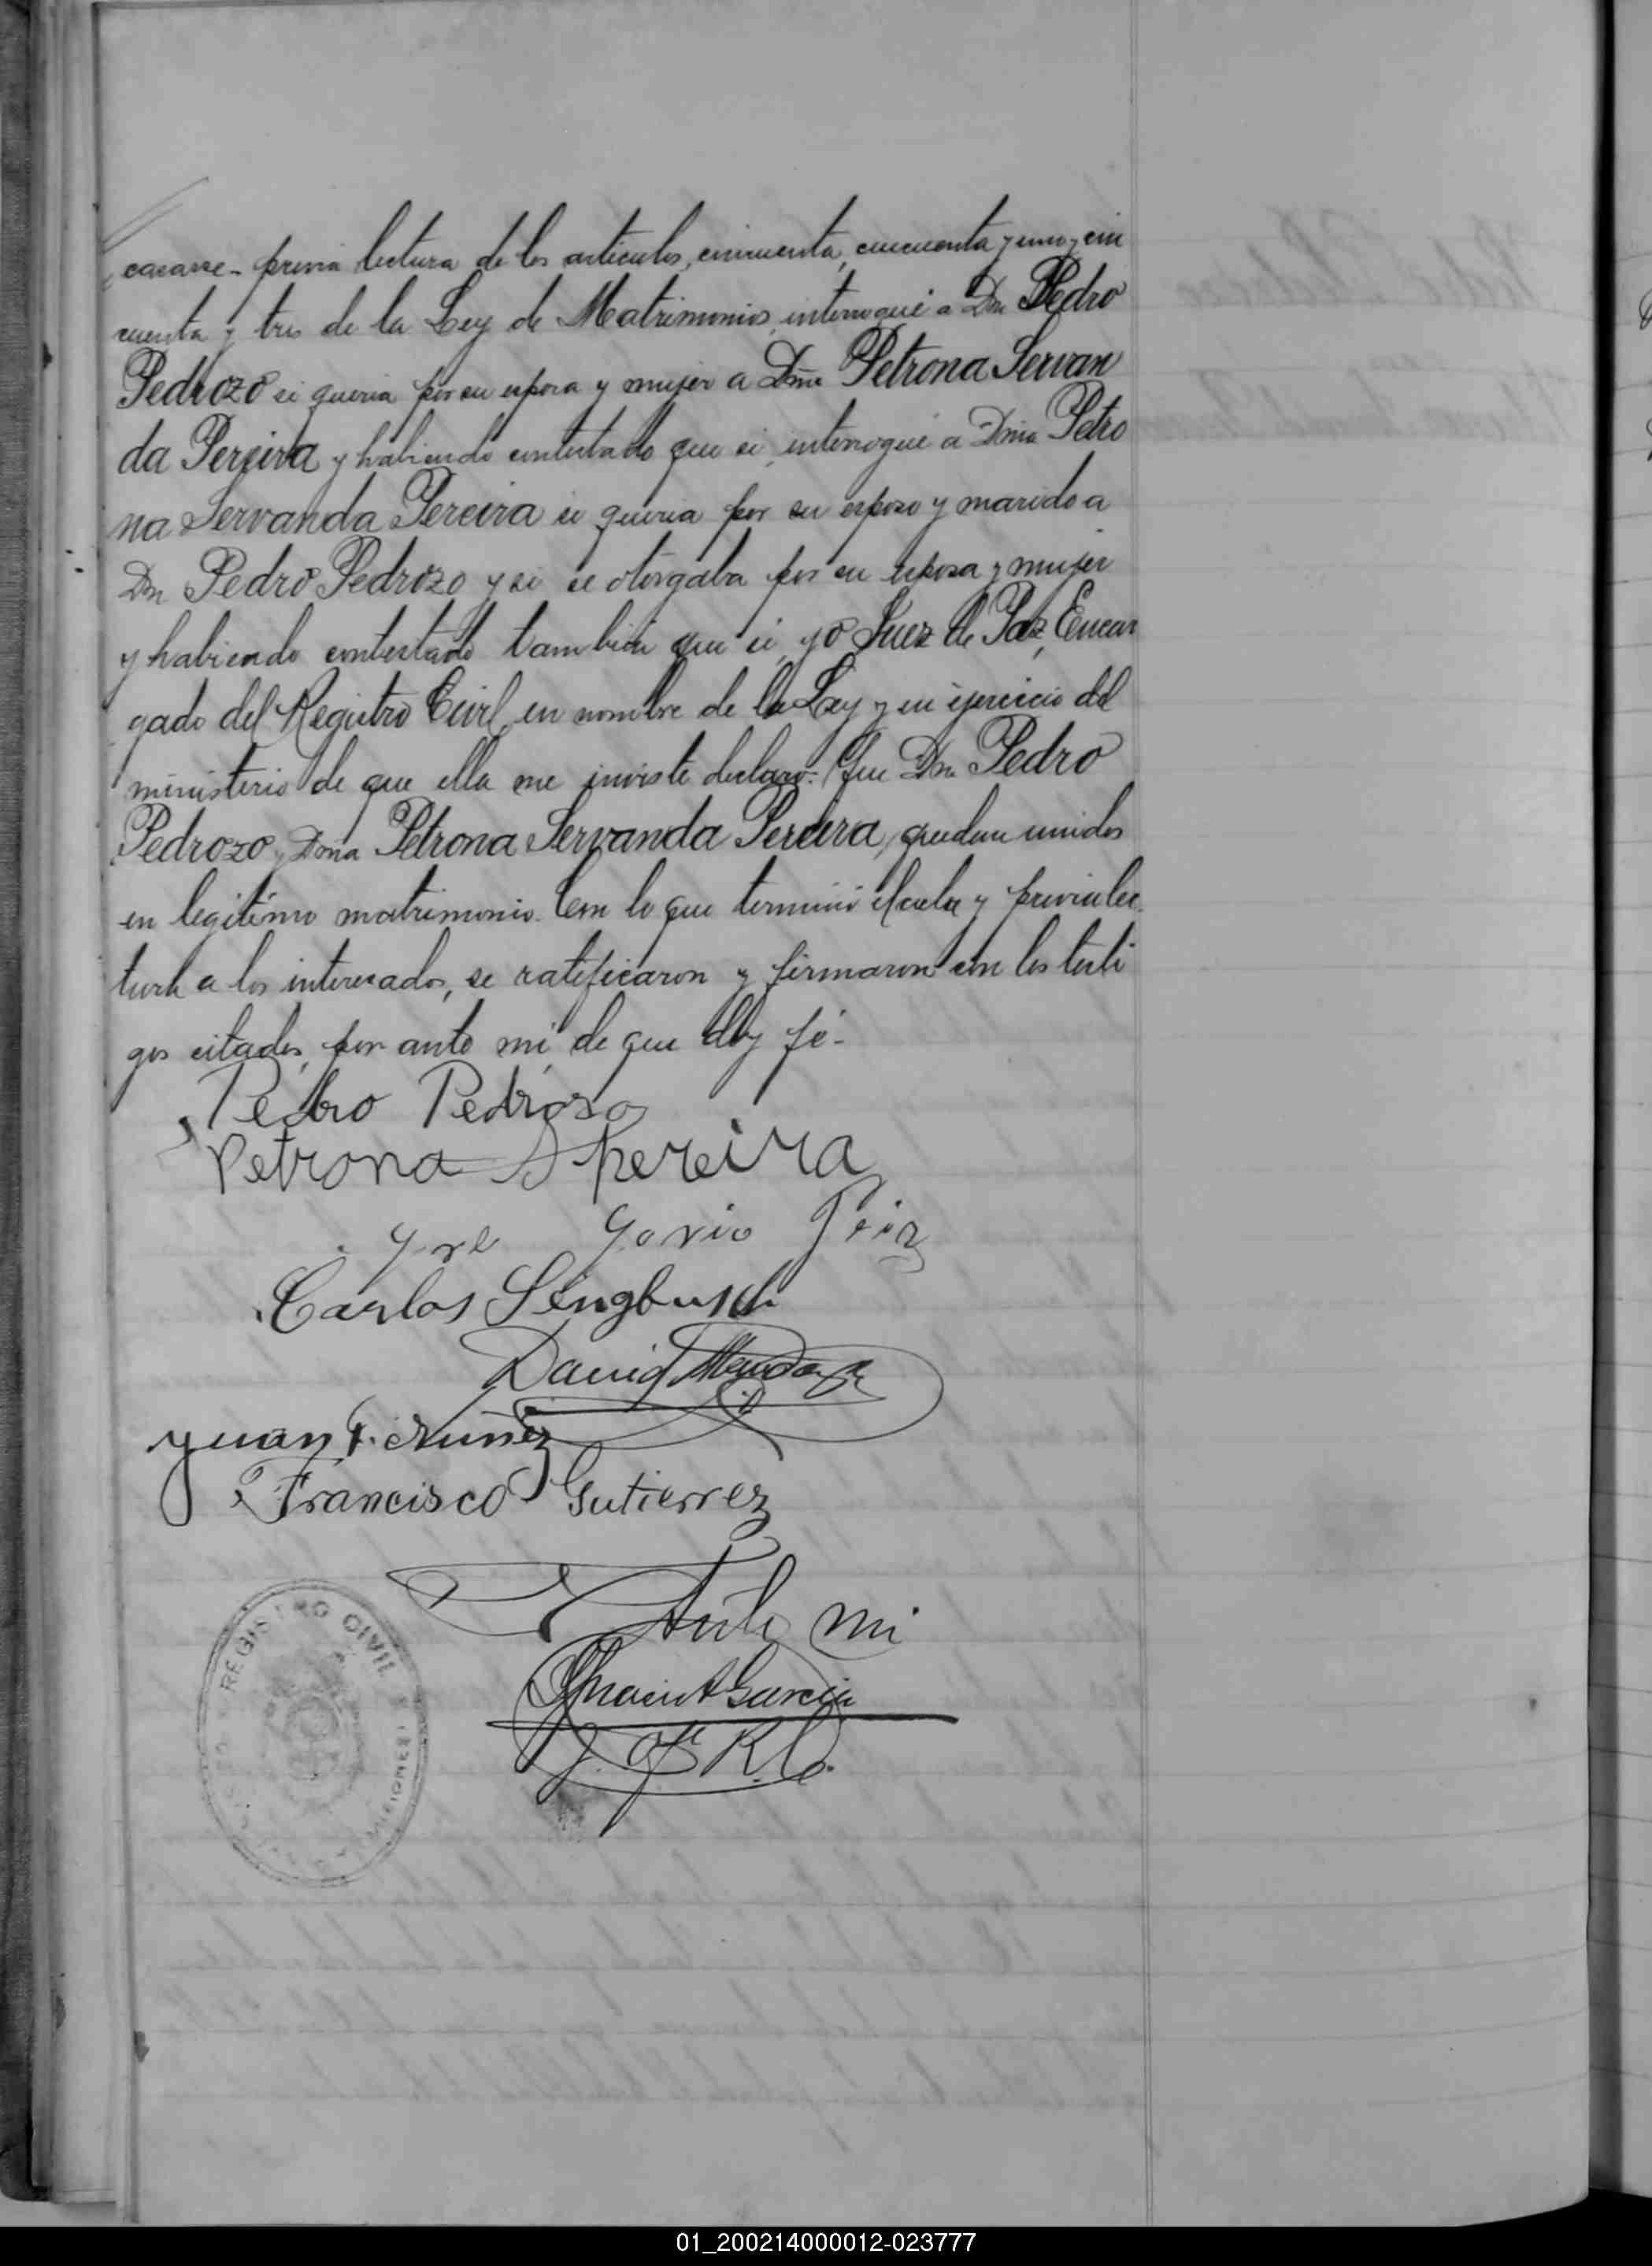 casarse - previa lectura de los articulos, cincuenta, cincuenta y uno y cin
cuenta y tres de la Ley de Matrimonios, interrogué a Dn Pedro
Pedrozo si queria por su esposa y mujer a Dña Petrona Servan
da Pereira y habiendo contestado que si, interrogué a Dña Petro
na Servanda Pereira si queria por su esposo y marido a
Dn Pedro Pedrozo y si se otorgaba por su esposa y mujer
y habiendo contestado tambien que si, yo Juez de Paz, Encar
gado del Registro Civil, en nombre de la Ley y en ejercicio del
ministerio de que ella me inviste declaro: Que Dn Pedro
Pedrozo y Doña Petrona Servanda Pereira, quedan unidos
en legitimo matrimonio. Con lo que terminó el acta y previa lec
tura a los interesados, se ratificaron y firmaron con los testi
gos citados, por ante mi, de que doy fé -
Pedro Pedrozo
Petrona S Pereira
Carlos Sengbusch
David Mendoza
Juan F. Nuñez
Francisco Gutierrez
Ante mi
Garcia
REGISTRO CIVIL
MISIONES
01_200214000012-023777